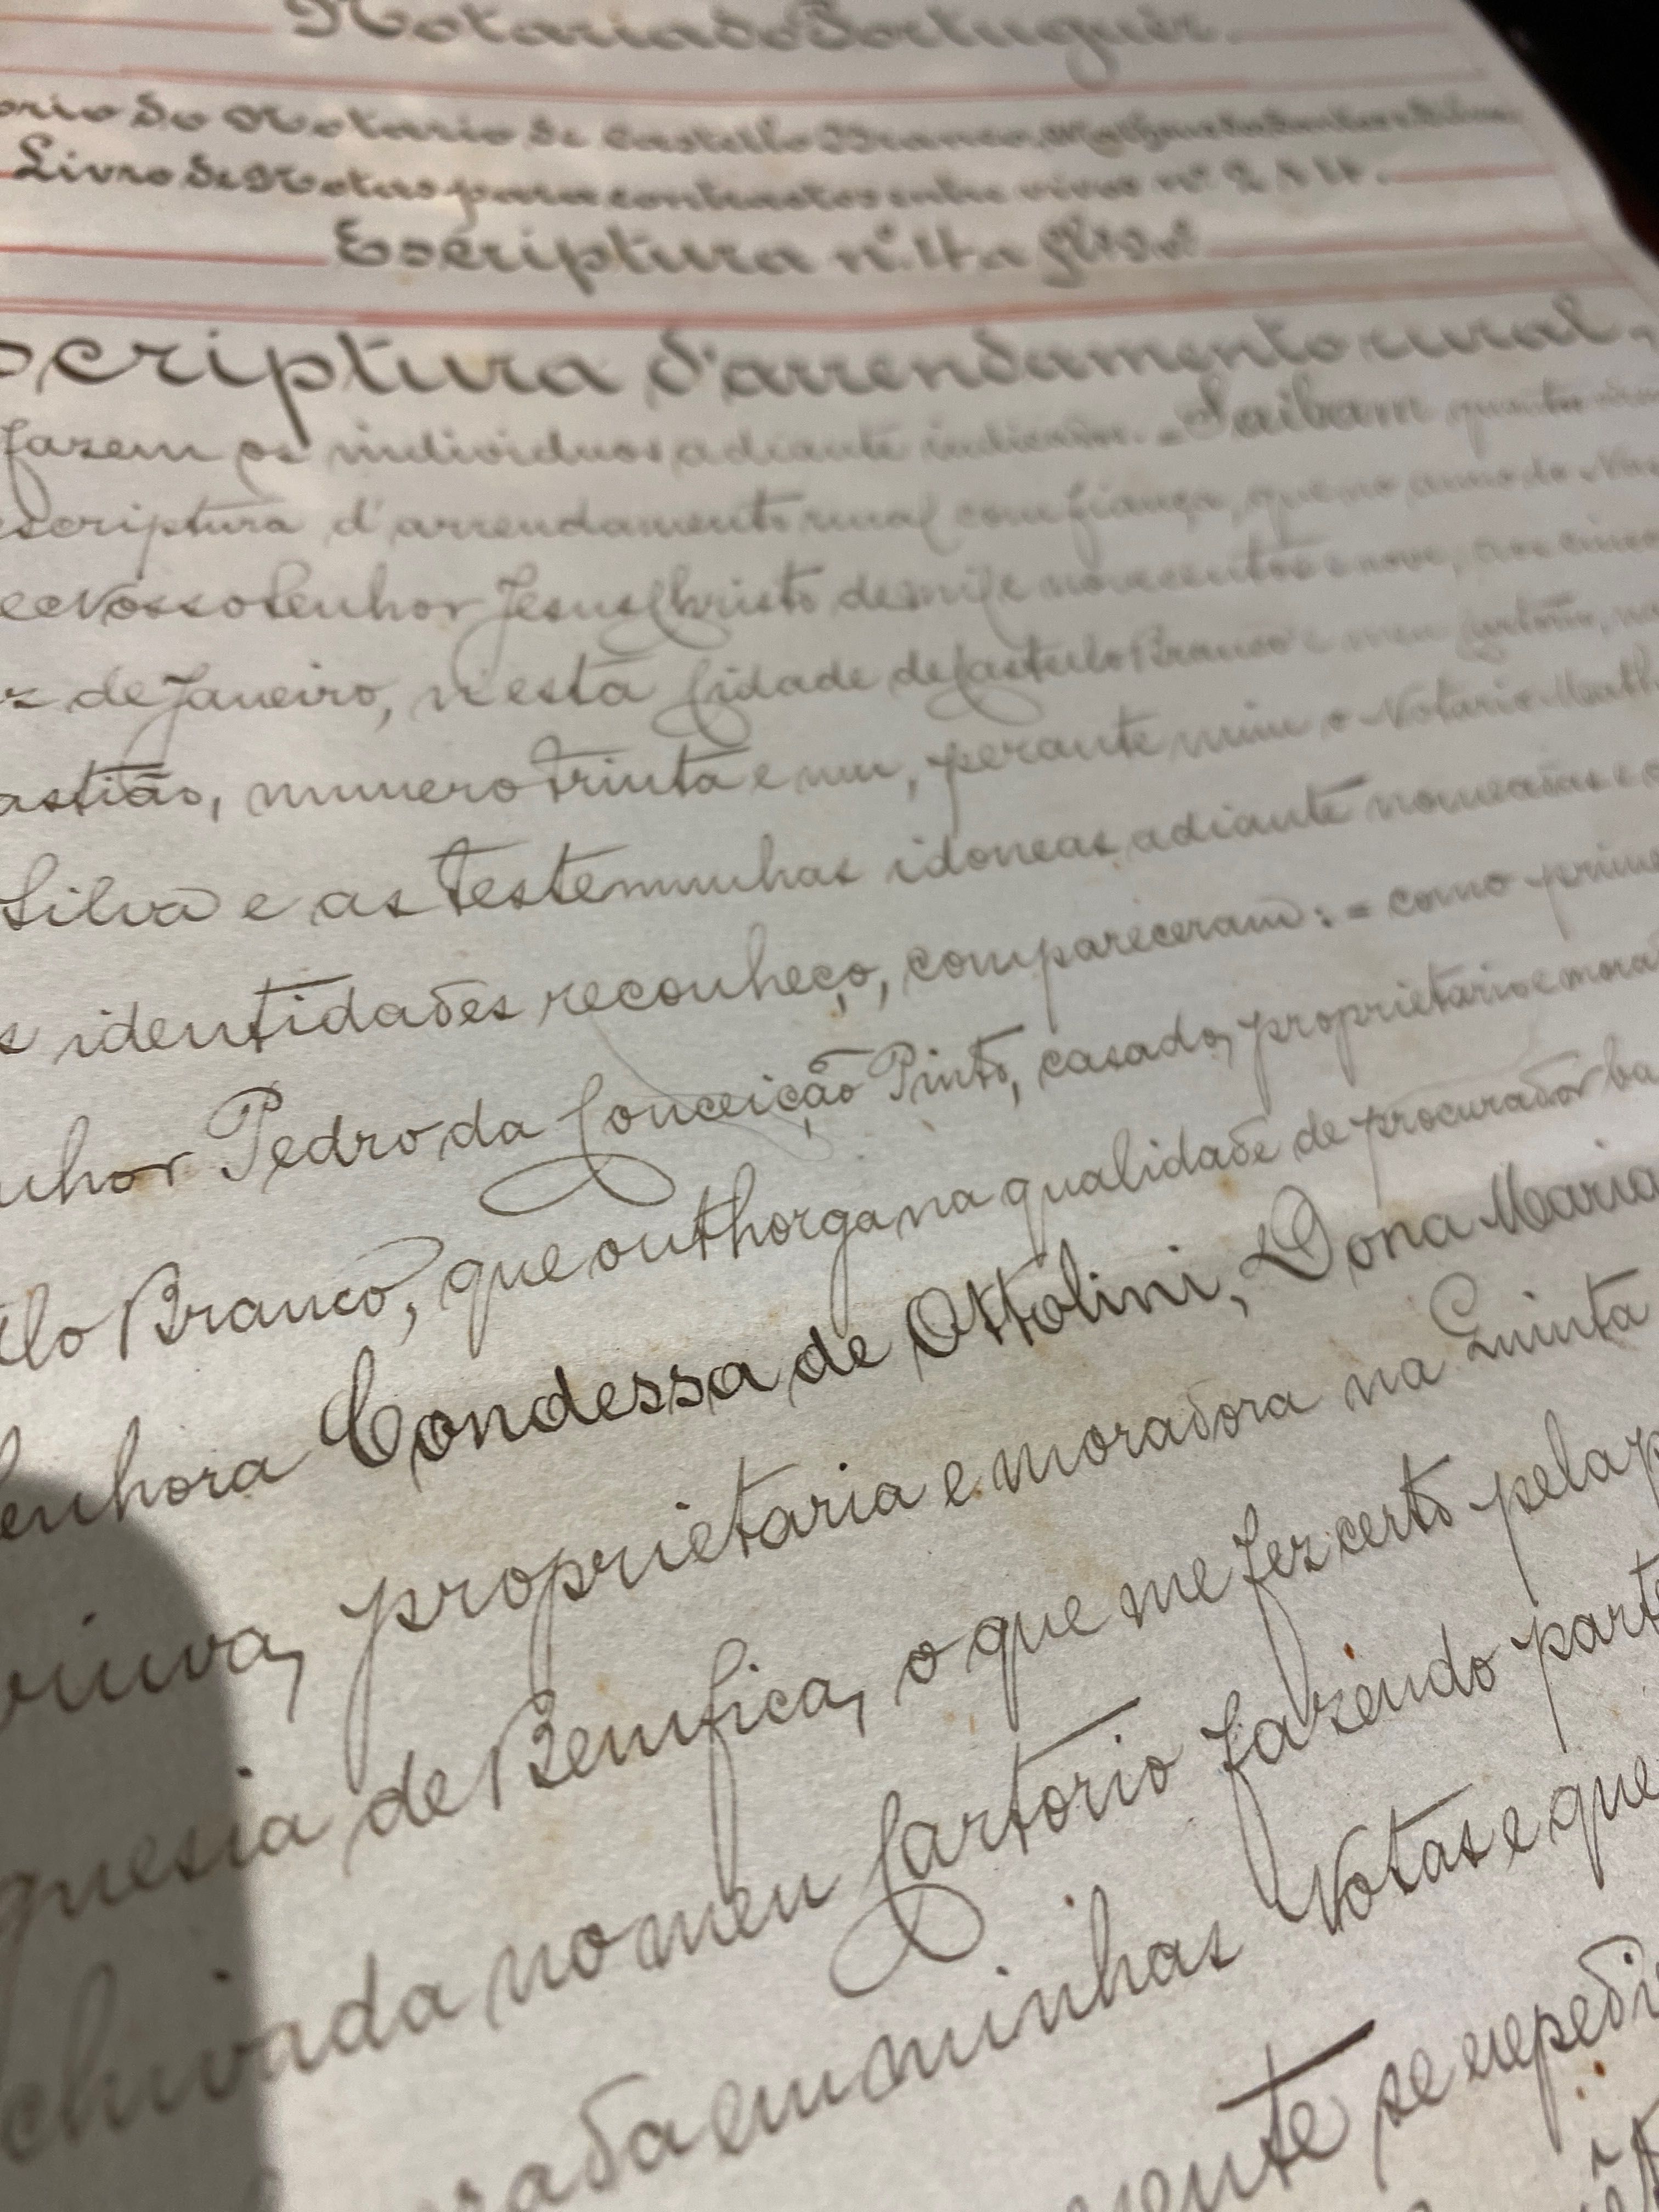 Notariado Portuguez.
orio do Notario de Castello Branco, Matheus da Silva
Livro de Notas para contractos entre vivos nº
Escriptura nº
scriptura d'arrendamento rural,
fazem os individuos adiante indicados. = Saibam quantos
escriptura d'arrendamento rural com fiança, que no anno do Nas
e Nosso Senhor Jesus Christo de mil e novecentos e nove, aos cinco
z de Janeiro, n'esta Cidade de Castello Branco e meu Cartorio, na
astião, numero trinta e um, perante mim o Notario Math
Silva e as testemunhas idoneas adiante nomeadas e
s identidades reconheço, compareceram: = como prime
nhor Pedro da Conceição Pinto, casado, proprietario e mora
llo Branco, que outhorga na qualidade de procurador ba
enhora Condessa de Ottolini, Dona Maria
viuva, proprietaria e moradora na Quinta
guesia de Bemfica, o que me fez certo pela p
chivada no meu Cartorio fazendo parte
rada em minhas Notas e que
sente se expedi